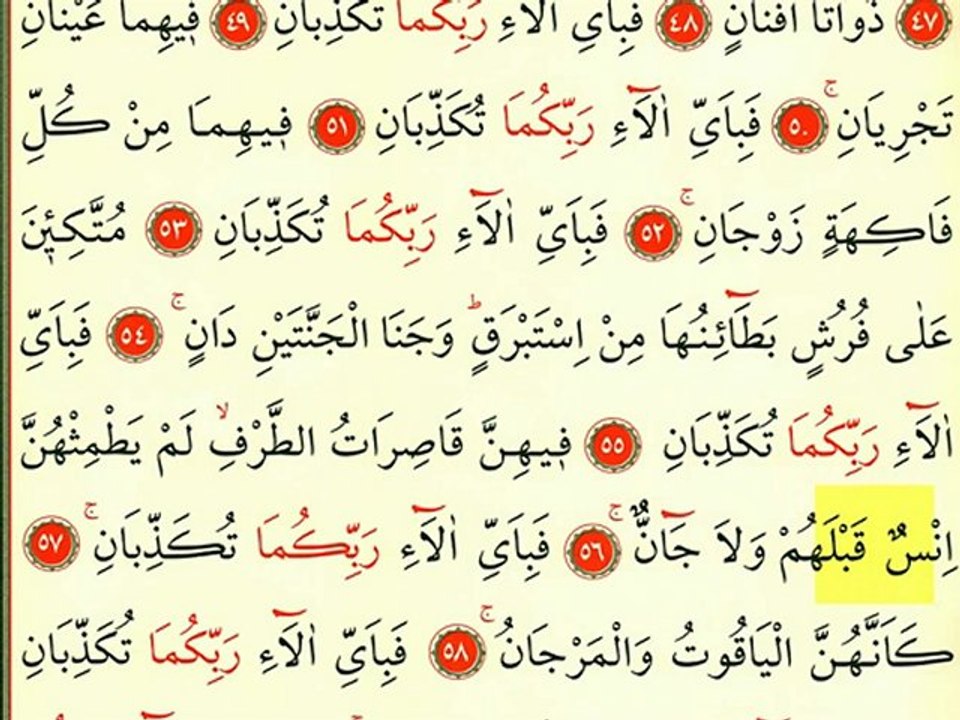 ﴿٤٧﴾ ذَوَاتَا اَفْنَانٍ ﴿٤٨﴾ فَبِاَيِّ اٰلَاءِ رَبِّكُمَا تُكَذِّبَانِ ﴿٤٩﴾ فِيهِمَا عَيْنَانِ
تَجْرِيَانِۚ ﴿٥٠﴾ فَبِاَيِّ اٰلَٓاءِ رَبِّكُمَا تُكَذِّبَانِ ﴿٥١﴾ فِيهِمَا مِنْ كُلِّ
فَاكِهَةٍ زَوْجَانِۚ ﴿٥٢﴾ فَبِاَيِّ اٰلَٓاءِ رَبِّكُمَا تُكَذِّبَانِ ﴿٥٣﴾ مُتَّكِـ۪ٔينَ
عَلٰى فُرُشٍ بَطَٓائِنُهَا مِنْ اِسْتَبْرَقٍۜ وَجَنَا الْجَنَّتَيْنِ دَانٍۚ ﴿٥٤﴾ فَبِاَيِّ
اٰلَٓاءِ رَبِّكُمَا تُكَذِّبَانِ ﴿٥٥﴾ ف۪يهِنَّ قَاصِرَاتُ الطَّرْفِۙ لَمْ يَطْمِثْهُنَّ
اِنْسٌ قَبْلَهُمْ وَلَا جَٓانٌّۚ ﴿٥٦﴾ فَبِاَيِّ اٰلَٓاءِ رَبِّكُمَا تُكَذِّبَانِۚ ﴿٥٧﴾
كَاَنَّهُنَّ الْيَاقُوتُ وَالْمَرْجَانُۚ ﴿٥٨﴾ فَبِاَيِّ اٰلَٓاءِ رَبِّكُمَا تُكَذِّبَانِ